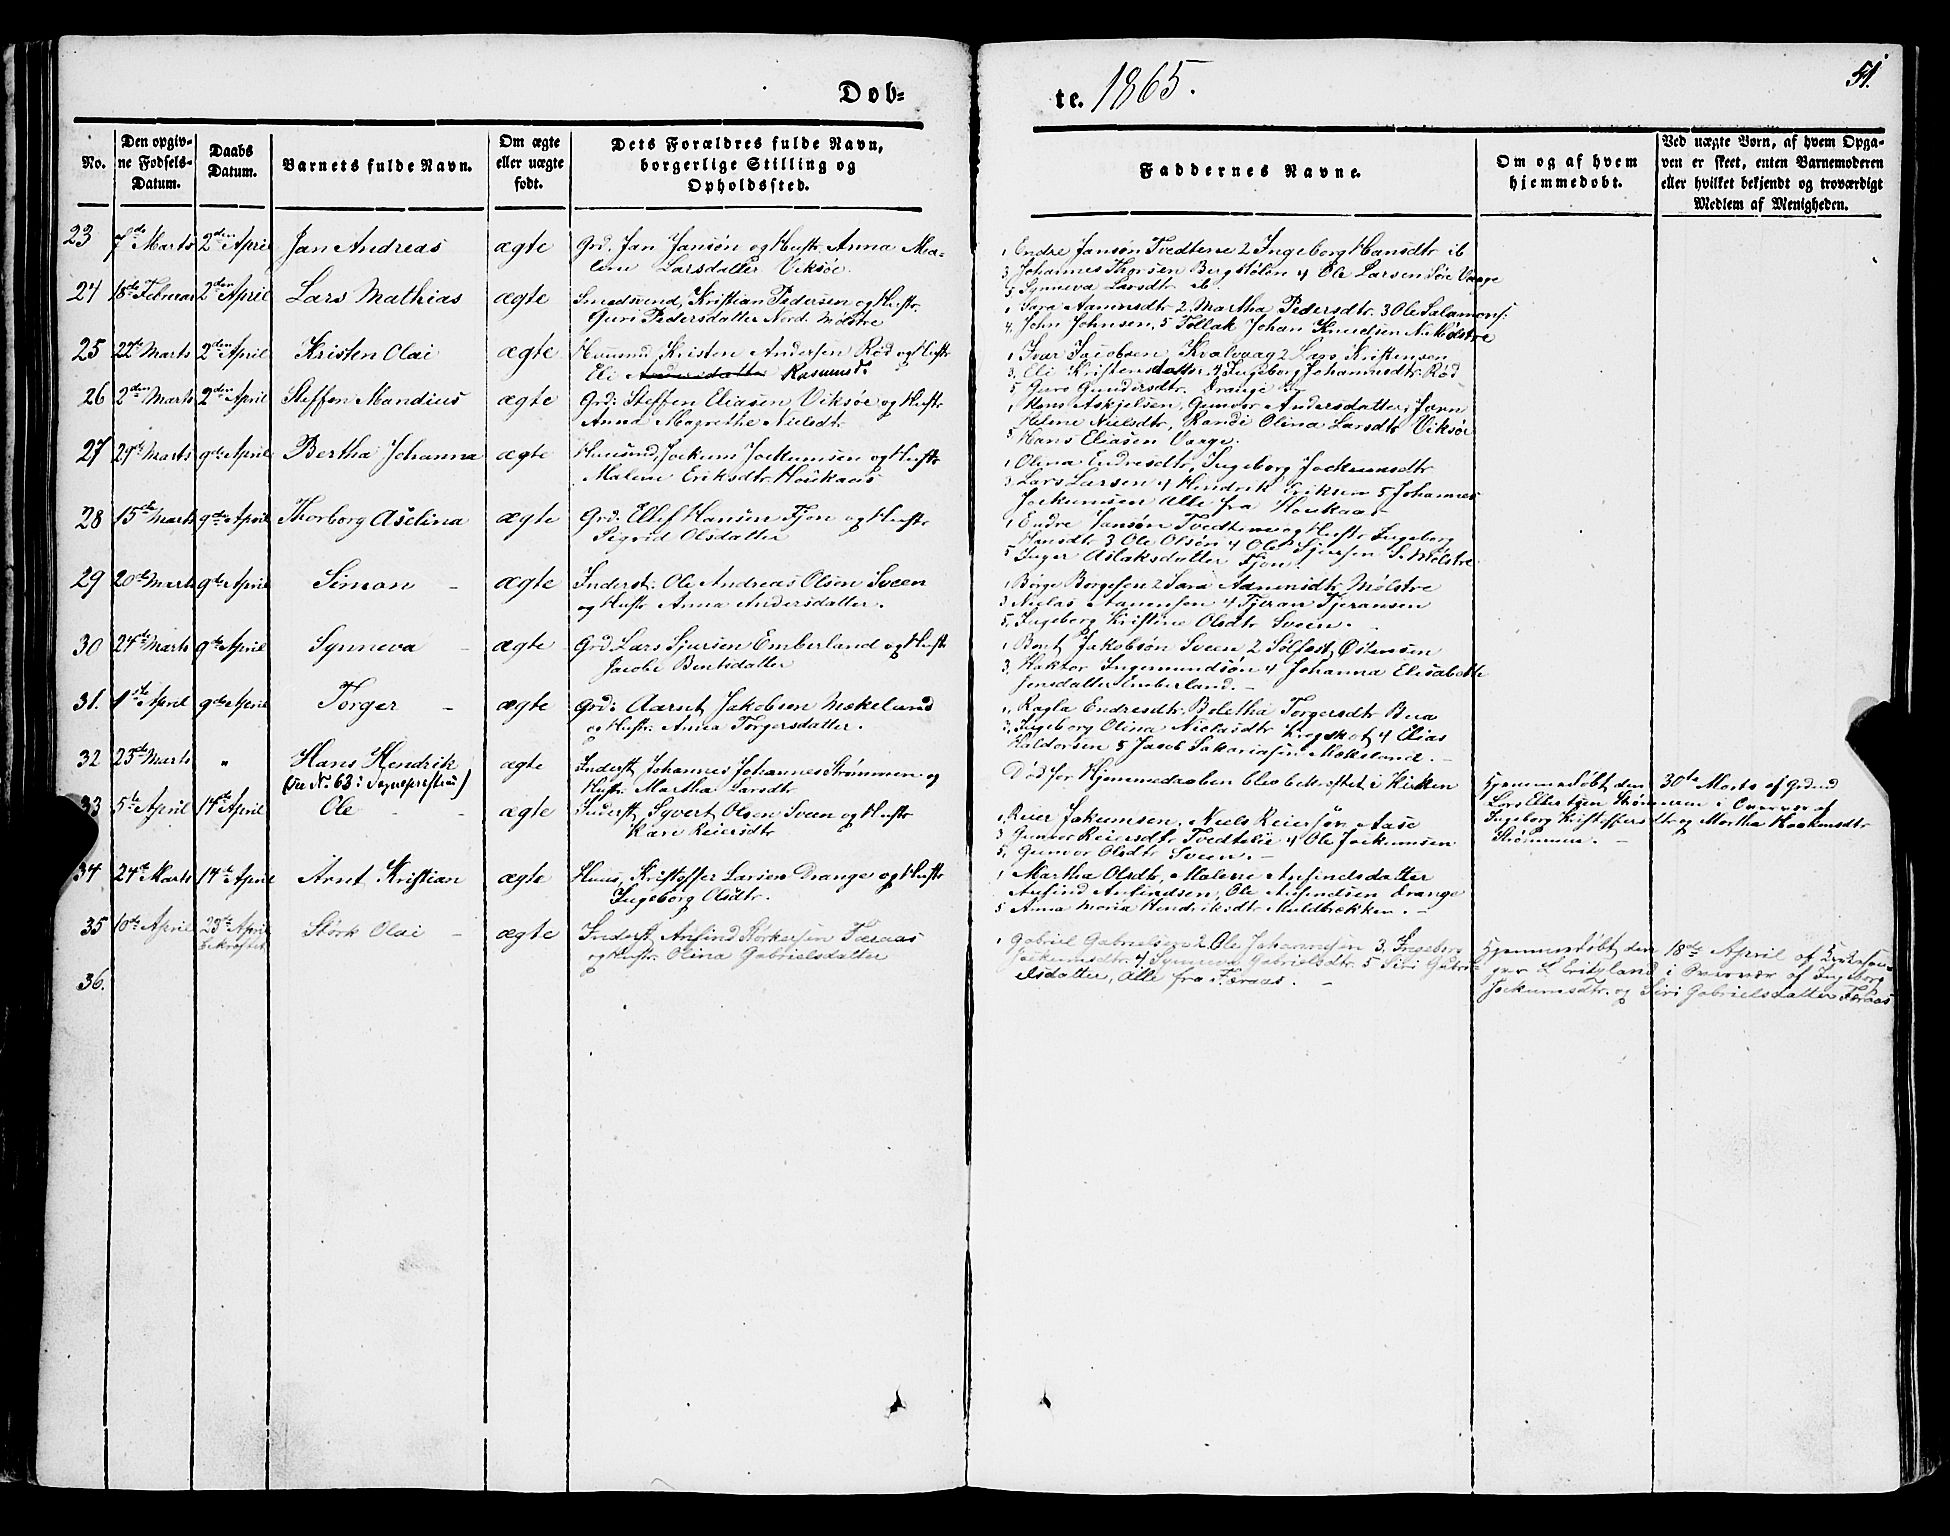 Døb-
te. 1865.
51.
No.
Den opgiv-
ne Fødsels-
Datum.
Daabs
Datum.
Barnets fulde Navn.
Om ægte
eller uægte
født.
Dets Forældres fulde Navn,
borgerlige Stilling og
Opholdssted.
Faddernes Navne.
Om og af hvem
hjemmedøbt.
Ved uægte Børn, af hvem Opga-
ven er skeet, enten Barnemoderen
eller hvilket bekjendt og troværdigt
Medlem af Menigheden.
23 7de Marts 2den April Jan Andreas ægte Grd. Jan Jansøn og Hustr. Anna Ma-
lene Larsdatter Viksøe.
1, Endre Jansøn Tvedtene 2 Ingeborg Hansdtr ib
3, Johannes Thorsen Bergstølen 4 Ole Larsen Søe Vaage
5, Synneva Larsdtr ib.
24 18de Februar 2den April Lars Mathias ægte Smedsvend, Kristian Pedersen og Hustr.
Guri Pedersdatter Nord. Mølstre
1, Sara Aamundtr 2, Martha Pedersdtr. 3 Ole Salamons:
4, John Johnsen, 5 Tollak Johan Knudsen N. Mølstre
25 22de Marts 2den April Kristen Olai ægte Huusmd, Kristen Andersen Rød og Hustr
Eli Andersdatter Rasmusd.
1, Ivar Jacobsen, Kvalvaag 2 Lars Kristensen
3, Eli Kristensdatter, 4 Ingeborg Johannsdtr. Rød
5 Guro Gundersdtr. Drange
26 2den Marts 2den April Steffen Mandius ægte Grd: Steffen Eliasen Viksøe og Hustr
Anna Magrethe Nielsdtr
1, Hans Askjelsen, Gunvor Andersdatter, Førn
Helene Nielsdtr, Randi Olina Larsdtr Viksøe
5 Hans Eliasen Vaage.
27 29de Marts 9de April Bertha Johanna ægte Huusmd, Jockum Jockumsen og Hustr
Malene Eriksdtr. Houkaas
1, Olina Endresdtr, Ingeborg Jockumsdtr
3, Lars Larsen 4 Hendrik Eriksen 5 Johannes
Jockumsen Alle fra Houkaas
28 15de Marts 9de April Thorborg Aselina ægte Grd. Ellef Hansen Fjon og Hustr
Sigrid Olsdatter
1, Endre Jansøn Tvedtene og Hustr Ingeborg
Hansdtr 3 Ole Olsøn 4 Ole Sjursen S. Mølstre
5 Inger Aslaksdatter Fjon.
29 20de Marts 9de April Simon - ægte Inderst: Ole Andreas Olsen Sveen
og Hustr Anna Andersdatter.
1, Børge Børgesen 2 Sara Aamundtr Mølstre
3 Nielas Aanensen 4 Tjeran Tjeransen
5, Ingeborg Kristine Olsdtr Sveen. -
30 24de Marts 9de April Synneva - ægte Grd Lars Sjursen Emberland og Hustr
Jacobe Bentsdatter
1, Bent Jakobsøn Sveen 2 Sølfest Østensen
3 Haktor Ingemundsøn 4 Johanna Elisabethe
Jensdatter Emberland. -
31. 1ste April 9de April Torger - ægte Grd: Aamut Jakobsen Mækeland
og Hustr: Anna Torgersdatter.
1, Ragla Endresdtr. Bolethe Torgersdtr Bua
3, Ingeborg Olina Nielasdtr Krogskot 4 Elias
Haldorsen 5 Jacob Sakariasen Mækeland. -
32 23de Marts " Hans Hendrik ægte Inderst Johannes Johannes Strømmen og
(See No. 63 i )
Hustr. Martha Larsdtr
Død før Hjemmedaaben blev bekræftet i Kirken
Hjemmedøbt den 30te Marts af Grdmd
Lars Ellertsen Strømmen i Overvær af
Ingeborg Kristoffersdtr og Martha Haakonsdtr
Strømmen. -
33 5te April 14de April Ole - - ægte Inderst, Syvert Olsen Sveen og Hustr
Kari Reiersdtr
1, Reier Jokumsen, Niels Reiersøn Aase
3 Gunvor Reiersdtr Tvedtelie 4 Ole Jockumsen
5, Gunvor Olsdtr Sveen. -
34 24de Marts 14de April Arnt Kristian ægte Huus, Kristoffer Larsen Drange og Hustr
Ingeborg Olsdtr.
1 Martha Olsdtr, Malene Anfindsdatter
Anfind Anfindsen, Ole Anfindsen Drange
5 Anna Maria Hendriksdtr Muldbækken. -
35 10de April 23de April Størk Olai - ægte Inderst Anfind Størkersen Færaas
bekræftet
og Hustr. Olina Gabrielsdatter
1 Gabriel Gabrielsen 2, Ole Johannesen 3. Ingeborg
Jockumsdtr. 4, Synneva Gabrielsdtr. 5 Siri Gabri-
elsdatter, Alle fra Færaas. -
Hjemmedøbt den 18de April af Kirkesan-
ger L Erityland i Overvær af Ingeborg
Jockumsdtr. og Siri Gabrielsdatter Færaas
36.